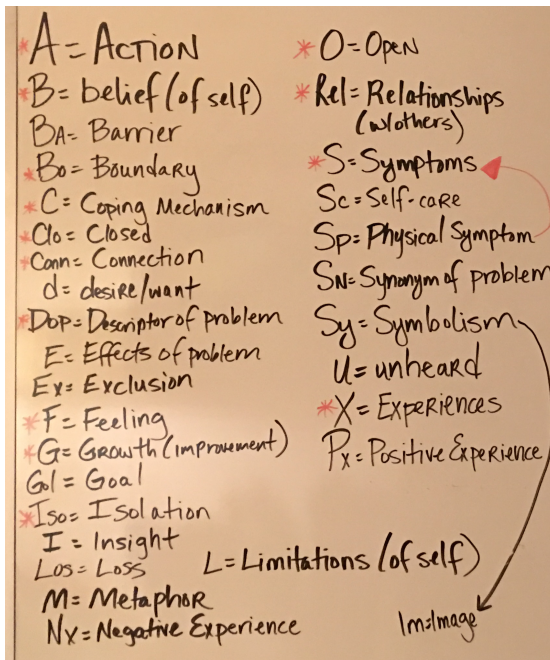 *A = ACTION
*B = belief (of self)
BA = Barrier
*Bo = Boundary
*C = Coping Mechanism
*Clo = Closed
*Conn = Connection
d = desire/want
*DOP = Descriptor of problem
E = Effects of problem
Ex = Exclusion
*F = Feeling
*G = GROWTH (improvement)
Gol = Goal
*Iso = Isolation
I = Insight
Los = Loss
M = Metaphor
Nx = Negative Experience
*O = Open
*Rel = Relationships
(w/others)
*S = Symptoms
Sc = Self-care
Sp = Physical Symptom
SN = Synonym of problem
Sy = Symbolism
U = unheard
*X = Experiences
Px = Positive Experience
L = Limitations (of self)
Im = Image